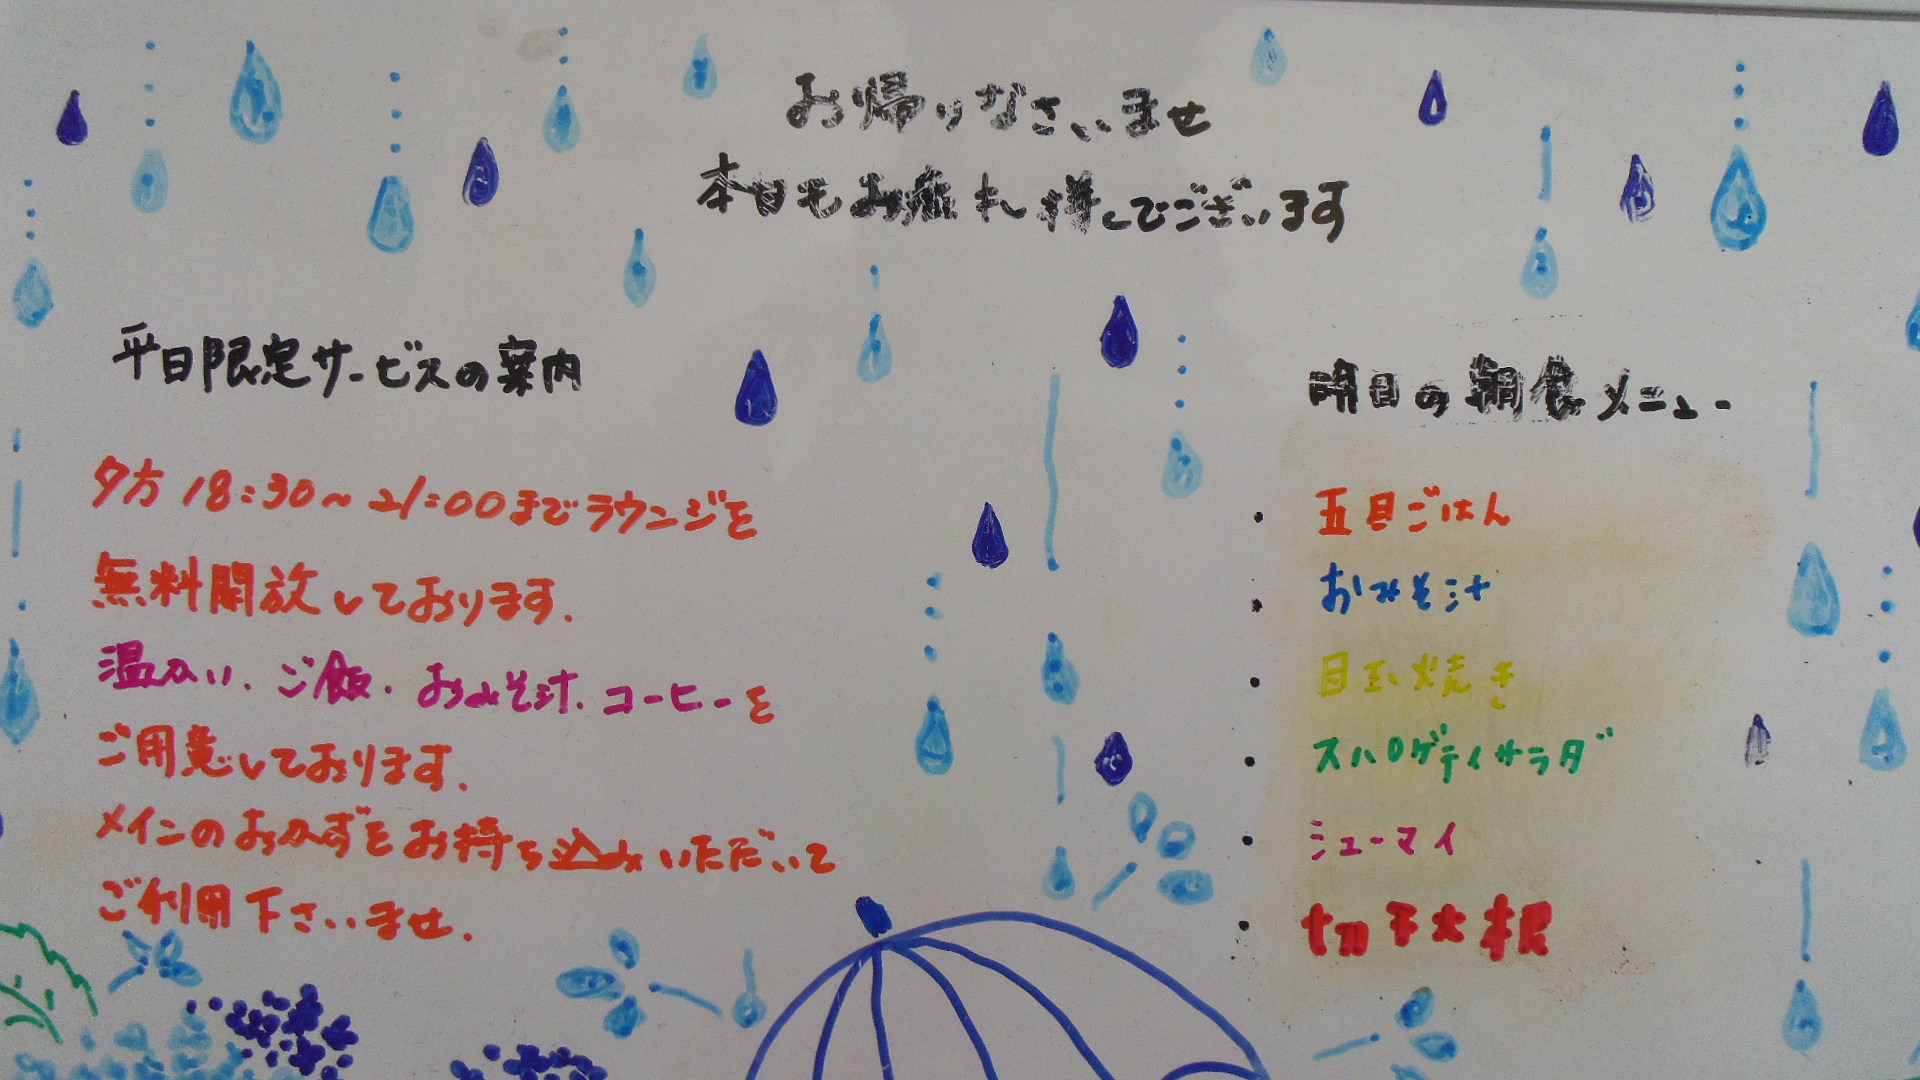 お帰りなさいませ
本日もお疲れ様でございます
平日限定サービスの案内
夕方18:30~21:00までラウンジを
無料開放しております.
温かい、ご飯.おみそ汁.コーヒーを
ご用意しております.
メインのおかずをお持ち込みいただいて
ご利用下さいませ.
明日の朝食メニュー
・五目ごはん
・おみそ汁
・目玉焼き
・スパゲティサラダ
・シューマイ
・切干大根